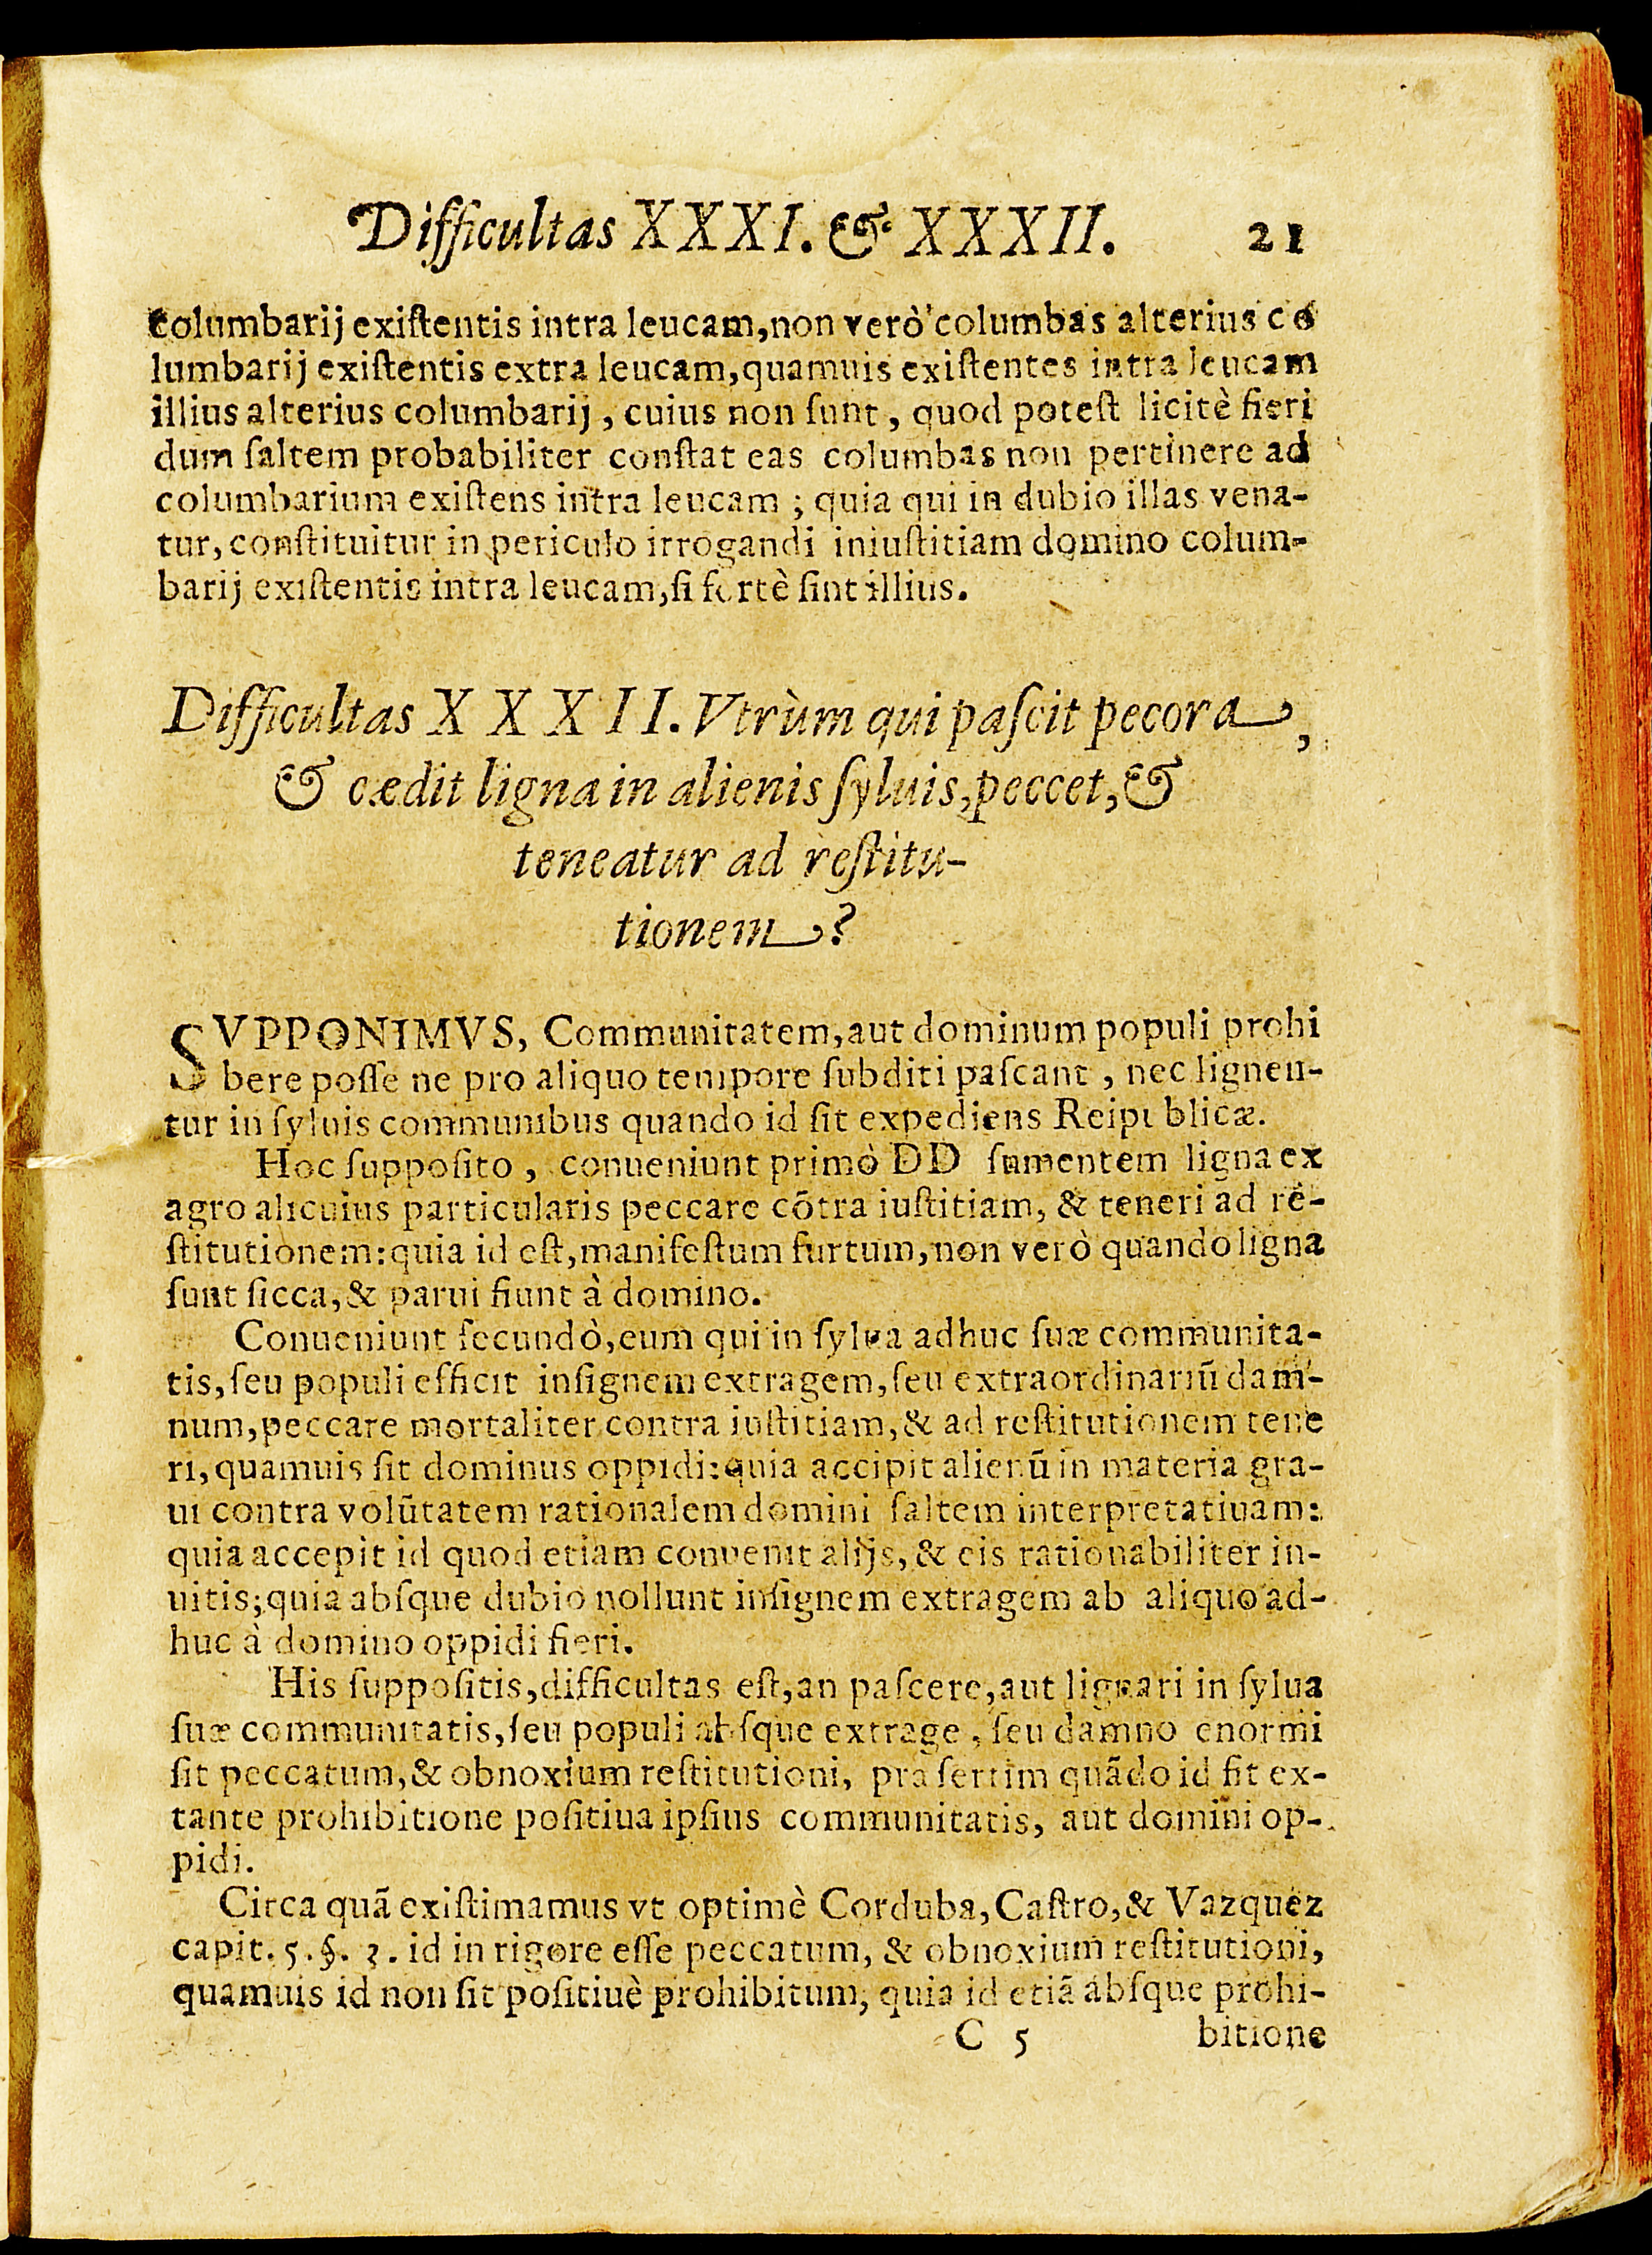 Difficultas XXXI. & XXXII. 21
columbarij exiſtentis intra leucam,non verò columbas alterius co
lumbarij exiſtentis extra leucam,quamuis exiſtentes intra leucam
illius alterius columbarij , cuius non ſunt , quod poteſt licitè fieri
dum ſaltem probabiliter conſtat eas columbas non pertinere ad
columbarium exiſtens intra leucam ; quia qui in dubio illas vena-
tur, conſtituitur in periculo irrogandi iniuſtitiam domino colum-
barij exiſtentis intra leucam,ſi fortè ſint illius.
Difficultas XXXII. Vtrùm qui paſcit pecora,
& cædit ligna in alienis ſyluis,peccet,&
teneatur ad reſtitu-
tionem?
SVPPONIMVS, Communitatem,aut dominum populi prohi
bere poſſe ne pro aliquo tempore ſubditi paſcant , nec lignen-
tur in ſyluis communibus quando id ſit expediens Reipublicæ.
Hoc ſuppoſito , conueniunt primò DD ſumentem ligna ex
agro alicuius particularis peccare cõtra iuſtitiam, & teneri ad re-
ſtitutionem:quia id eſt,manifeſtum furtum,non verò quando ligna
ſunt ſicca,& parui fiunt à domino.
Conueniunt ſecundò,eum qui in ſylua adhuc ſuæ communita-
tis,ſeu populi efficit inſignem extragem,ſeu extraordinariũ dam-
num,peccare mortaliter contra iuſtitiam,& ad reſtitutionem tene
ri,quamuis ſit dominus oppidi:quia accipit alienũ in materia gra-
ui contra volũtatem rationalem domini ſaltem interpretatiuam:
quia accepit id quod etiam conuenit alijs,& eis rationabiliter in-
uitis;quia abſque dubio nollunt inſignem extragem ab aliquo ad-
huc à domino oppidi fieri.
His ſuppoſitis,difficultas eſt,an paſcere,aut lignari in ſylua
ſuæ communitatis,ſeu populi abſque extrage , ſeu damno enormi
ſit peccatum,& obnoxium reſtitutioni, præſertim quãdo id fit ex-
tante prohibitione poſitiua ipſius communitatis, aut domini op-
pidi.
Circa quã exiſtimamus vt optimè Corduba,Caſtro,& Vazquez
capit. 5.§. 3. id in rigore eſſe peccatum, & obnoxium reſtitutioni,
quamuis id non ſit poſitiuè prohibitum, quia id etiã abſque prohi-
C 5 bitione